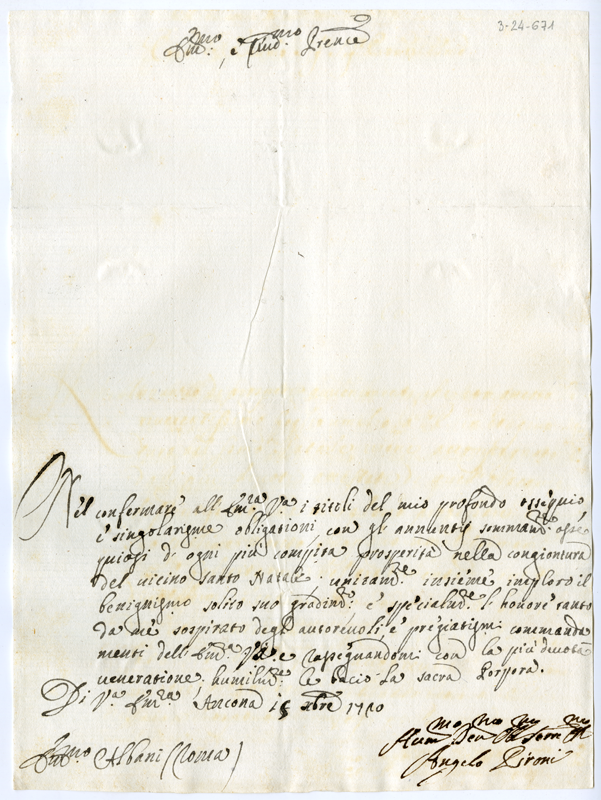 3-24-671
Em:mo, e Rmo Prence
Nel confermare all Em:ra V:a i titoli del mio profondo ossequio
e singolarissme obligationi con gli annenti sommam:te osse
quiosi di ogni più compita prosperità nella congiontura
del vicino santo Natale; unitam:te insieme imploro il
benignissmo solito suo gradim:to e specialm:te l honore tanto
da me sospirato degl autorevoli, e pregiatissmi commanda
menti dell Em:za V:a e rassegnandomi con la più devota
veneratione humilm:te le bacio la sacra Porpora.
Di V:a Em:za Ancona 15 xbre 1710
Hum:mo Dev:mo Obl:mo Serv:re
Em:mo Albani (Roma)
Angelo Pironi